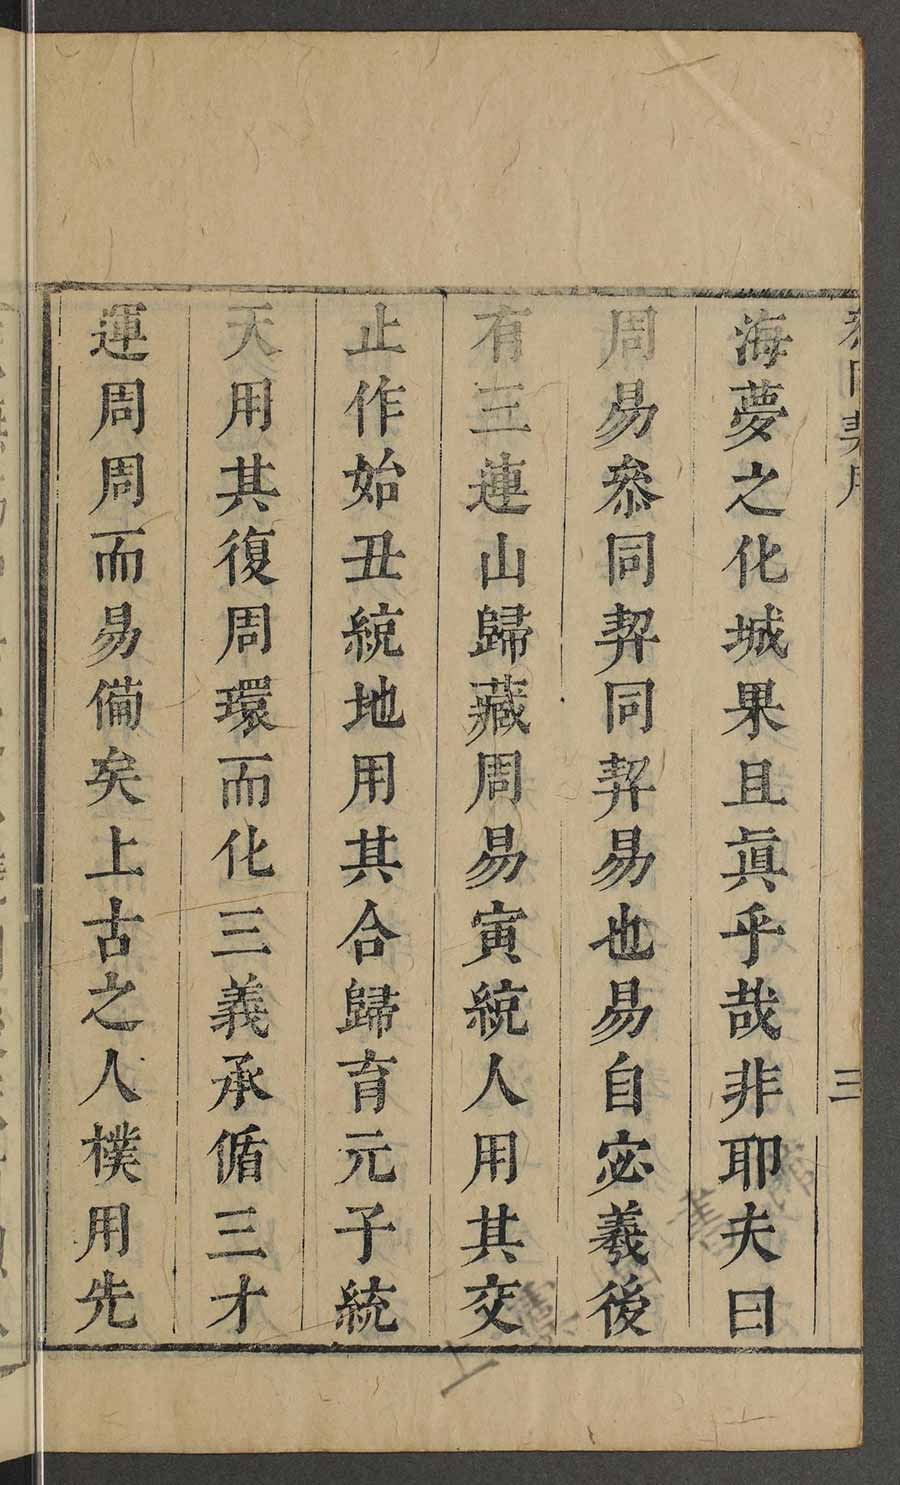 海夢之化城果且眞乎哉非耶夫曰
周易叅同契同契易也易自宓羲後
有三連山歸藏周易寅統人用其交
止作始丑統地用其合歸育元子統
天用其復周環而化三義承循三才
運周周而易備矣上古之人樸用先
三